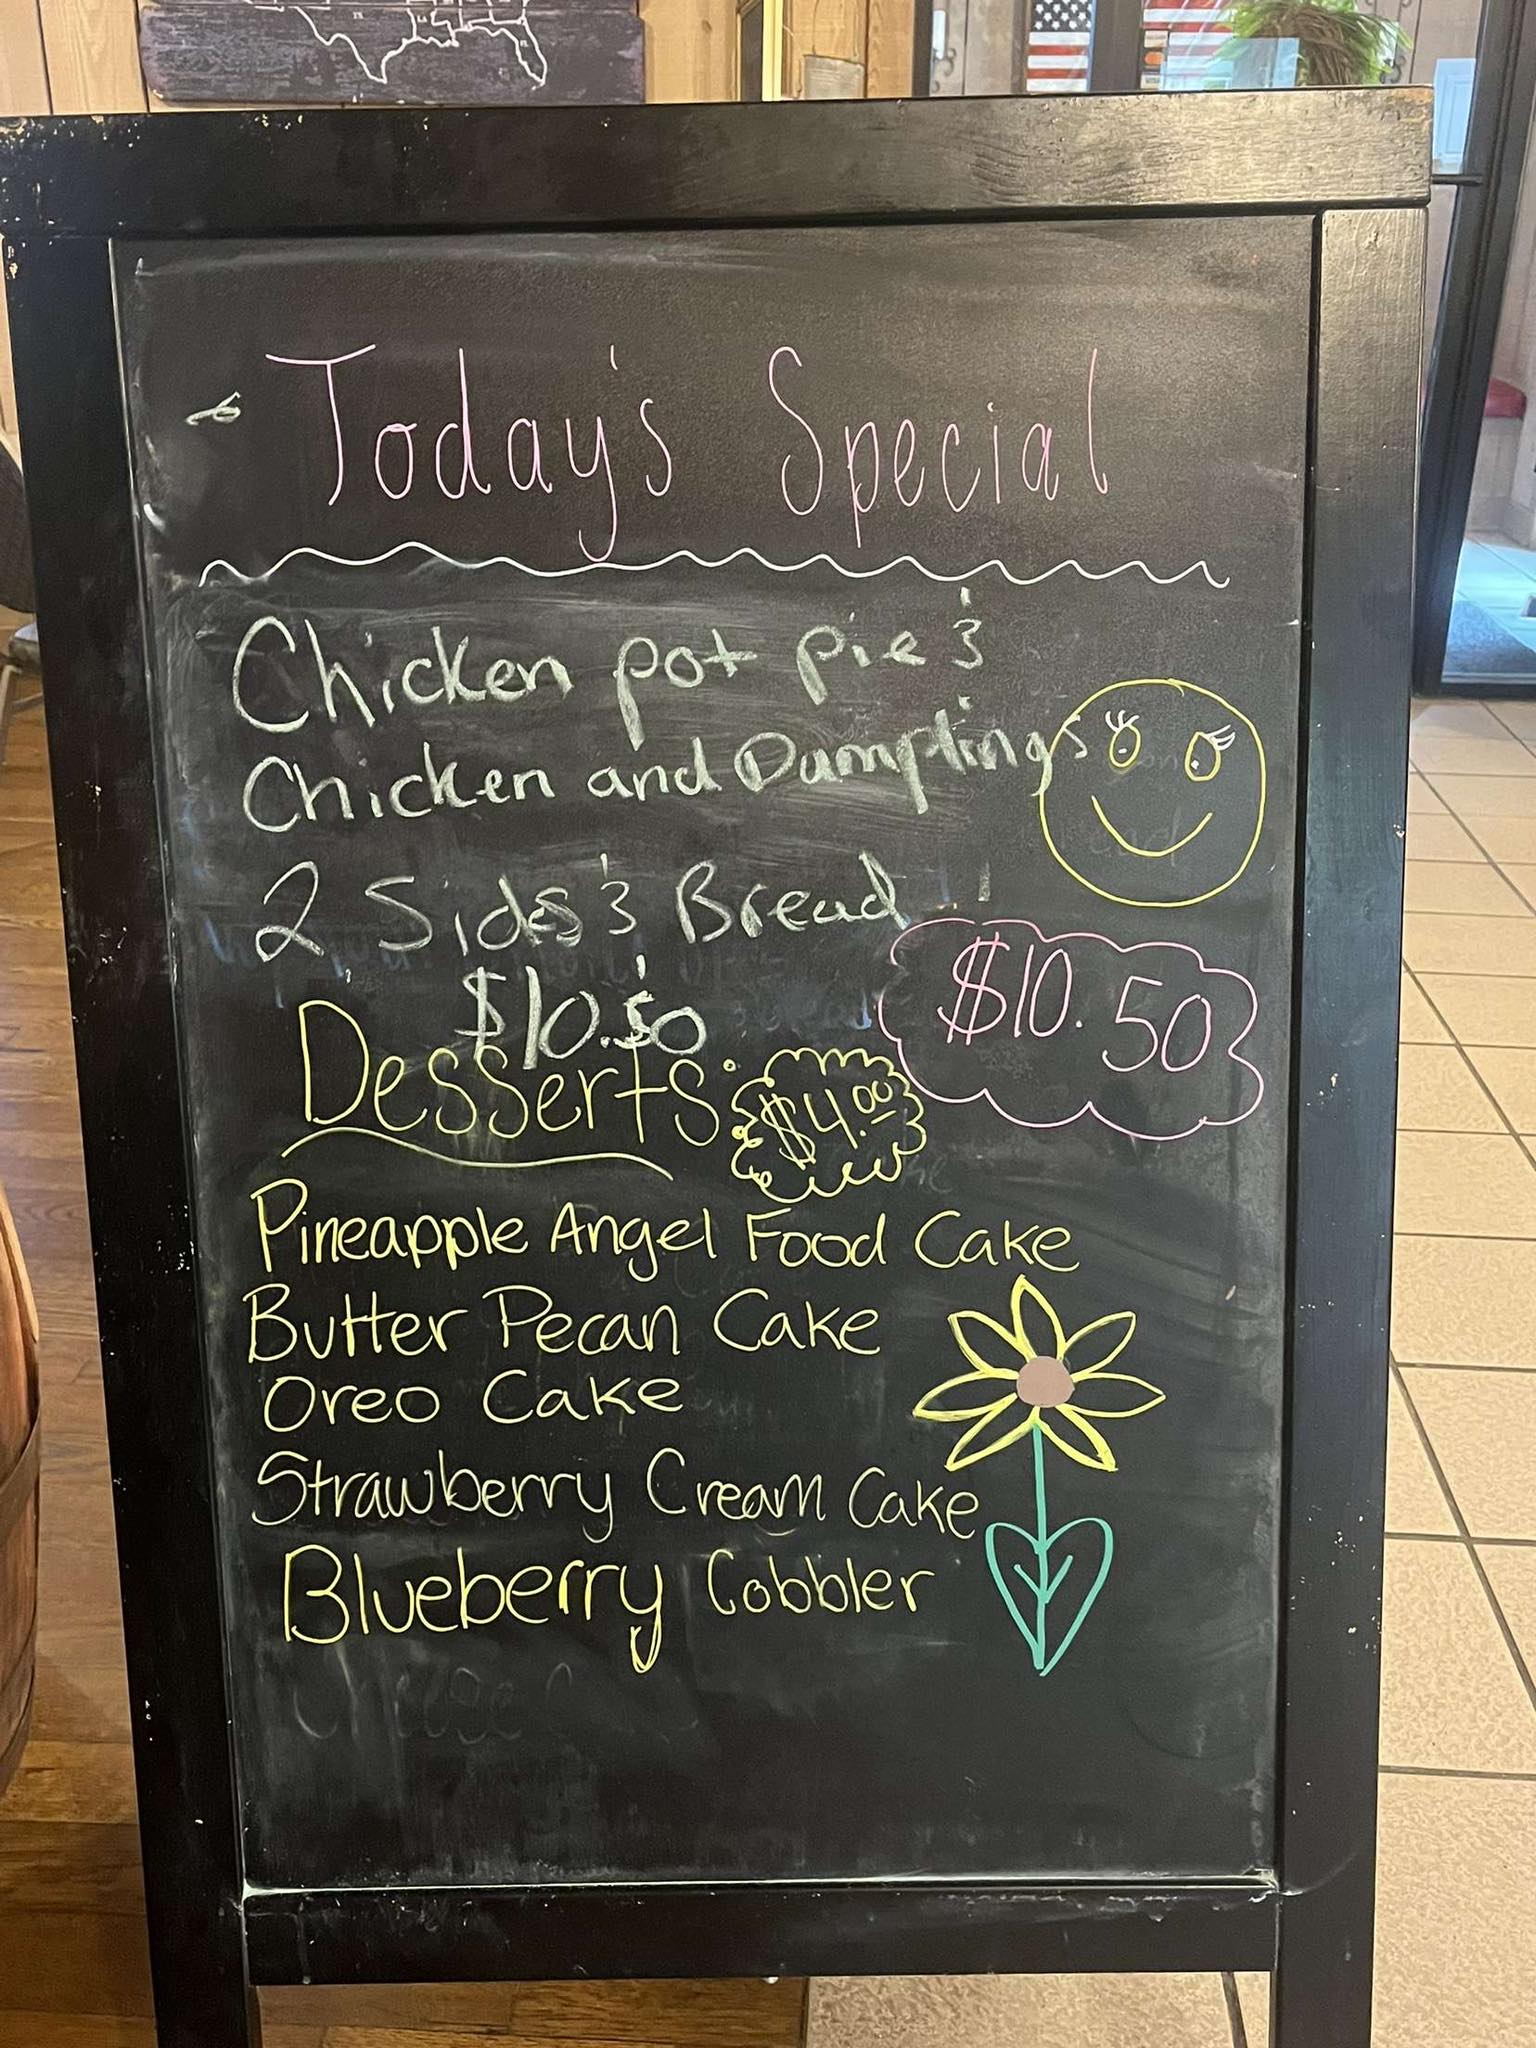 Today's Special
Chicken pot pie &
Chicken and Dumplings
2 Sides & Bread
$10.50
$10.50
Desserts: $4.00
Pineapple Angel Food Cake
Butter Pecan Cake
Oreo Cake
Strawberry Cream Cake
Blueberry Cobbler